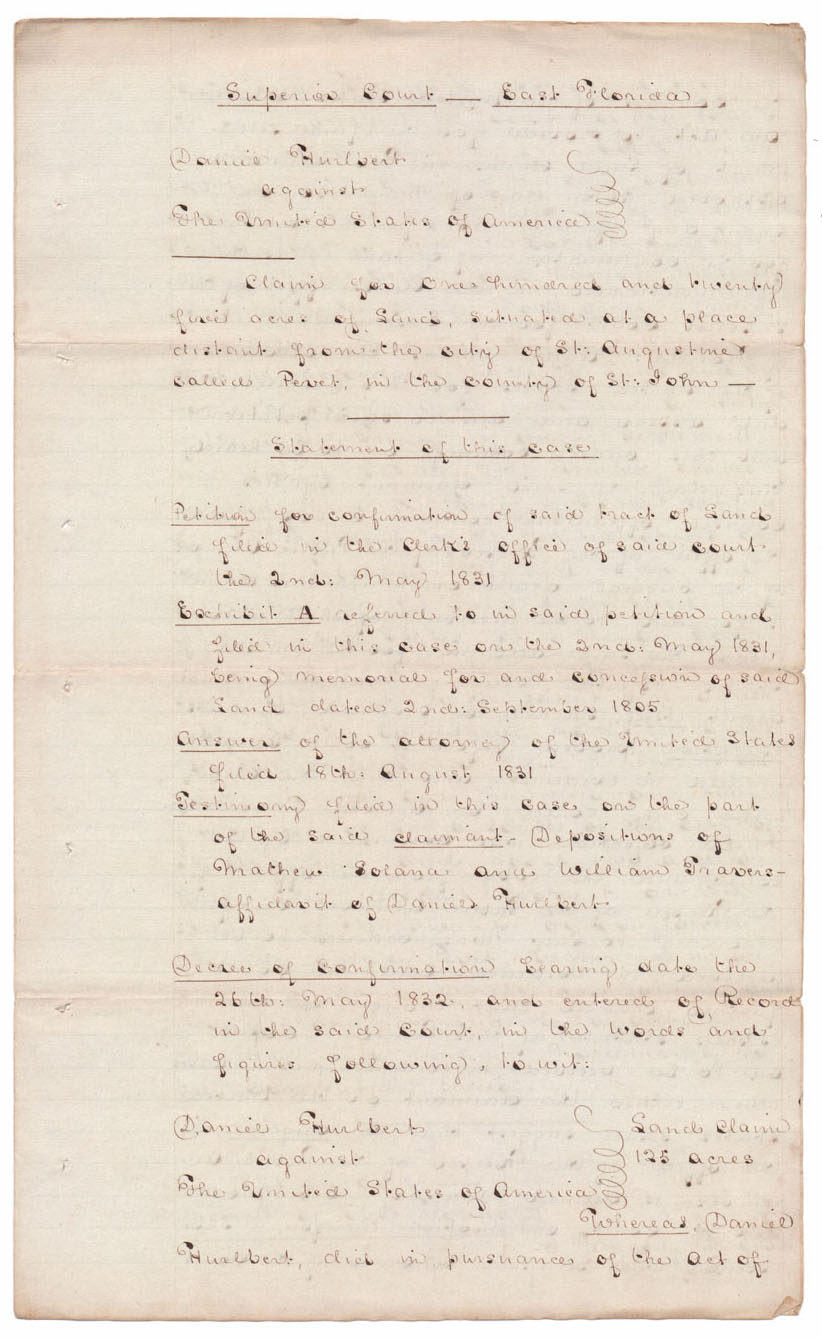 Superior Court — East Florida
Daniel Hurlbert
against
The United States of America
Claim for one hundred and twenty
five acres of Land, situated at a place
distant from the city of St: Augustine
called Pevet, in the county of St: John —
Statement of this case
Petition for confirmation of said tract of Land
filed in the Clerk's office of said court
the 2nd: May 1831
Exhibit A referred to in said petition and
filed in this case on the 2nd: May 1831,
being memorial for and concession of said
Land dated 2nd: September 1805
Answer of the attorney of the United States
filed 18th: August 1831
Testimony filed in this case on the part
of the said claimant - Depositions of
Mathew Solana and William Travers -
affidavit of Daniel Hurlbert
Decree of confirmation bearing date the
26th: May 1832, and entered of Record
in the said Court, in the words and
figures following, to wit:
Daniel Hurlbert Land Claim
against 125 acres
The United States of America
Whereas, Daniel
Hurlbert, did in pursuance of the Act of